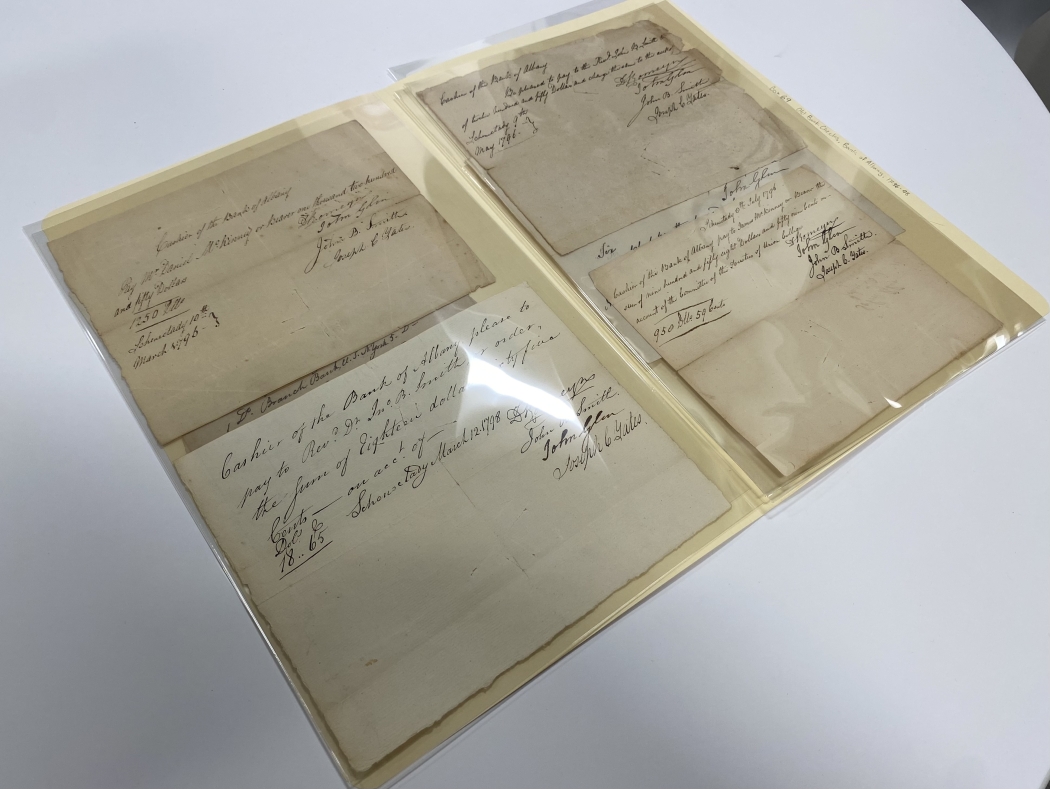 Cashier of the Bank of Albany
Pay Mr. Daniel McKinney or Bearer one thousand two hundred
and fifty Dollars
1250 Dlls
Schenectady 10th
March 1796.
John Glen
John B. Smith
Joseph C. Yates.
Branch Bank U.S. N York 5. D
Cashier of the Bank of Albany please to
pay to Revd. Dr. Jno. B. Smith order,
the Sum of Eighteen dollars Sixty five
Cents — on acct. of —
Dols C
18..65
Schenectady March 12. 1798
John Smith
John Glen
Joseph C. Yates.
Cashier of the Bank of Albany
Be pleased to pay to the Revd. John B. Smith
of twelve hundred and fifty Dollars and charge the same to the
Schenectady 9th
May 1796.
John Glen
John B. Smith
Joseph C. Yates.
John Glen
Schenectady 6th July 1796
Cashier of the Bank of Albany pay to James McKinney or Bearer the
sum of nine hundred and fifty eight Dollars and fifty nine Cents on
account of the Committee of the Trustees of Union College
950 Dlls 59 Cents
John Glen
John B. Smith.
Joseph C. Yates.
Bank of Albany, 1796-98